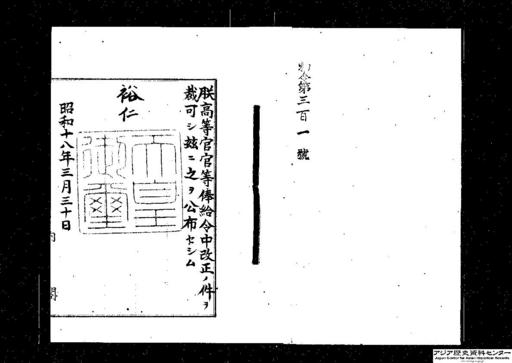 勅令第三百一號
朕高等官官等俸給令中改正ノ件ヲ
裁可シ玆ニ之ヲ公布セシム
裕仁
天皇御璽
昭和十八年三月三十日
内閣
アジア歴史資料センター
Japan Center for Asian Historical Records